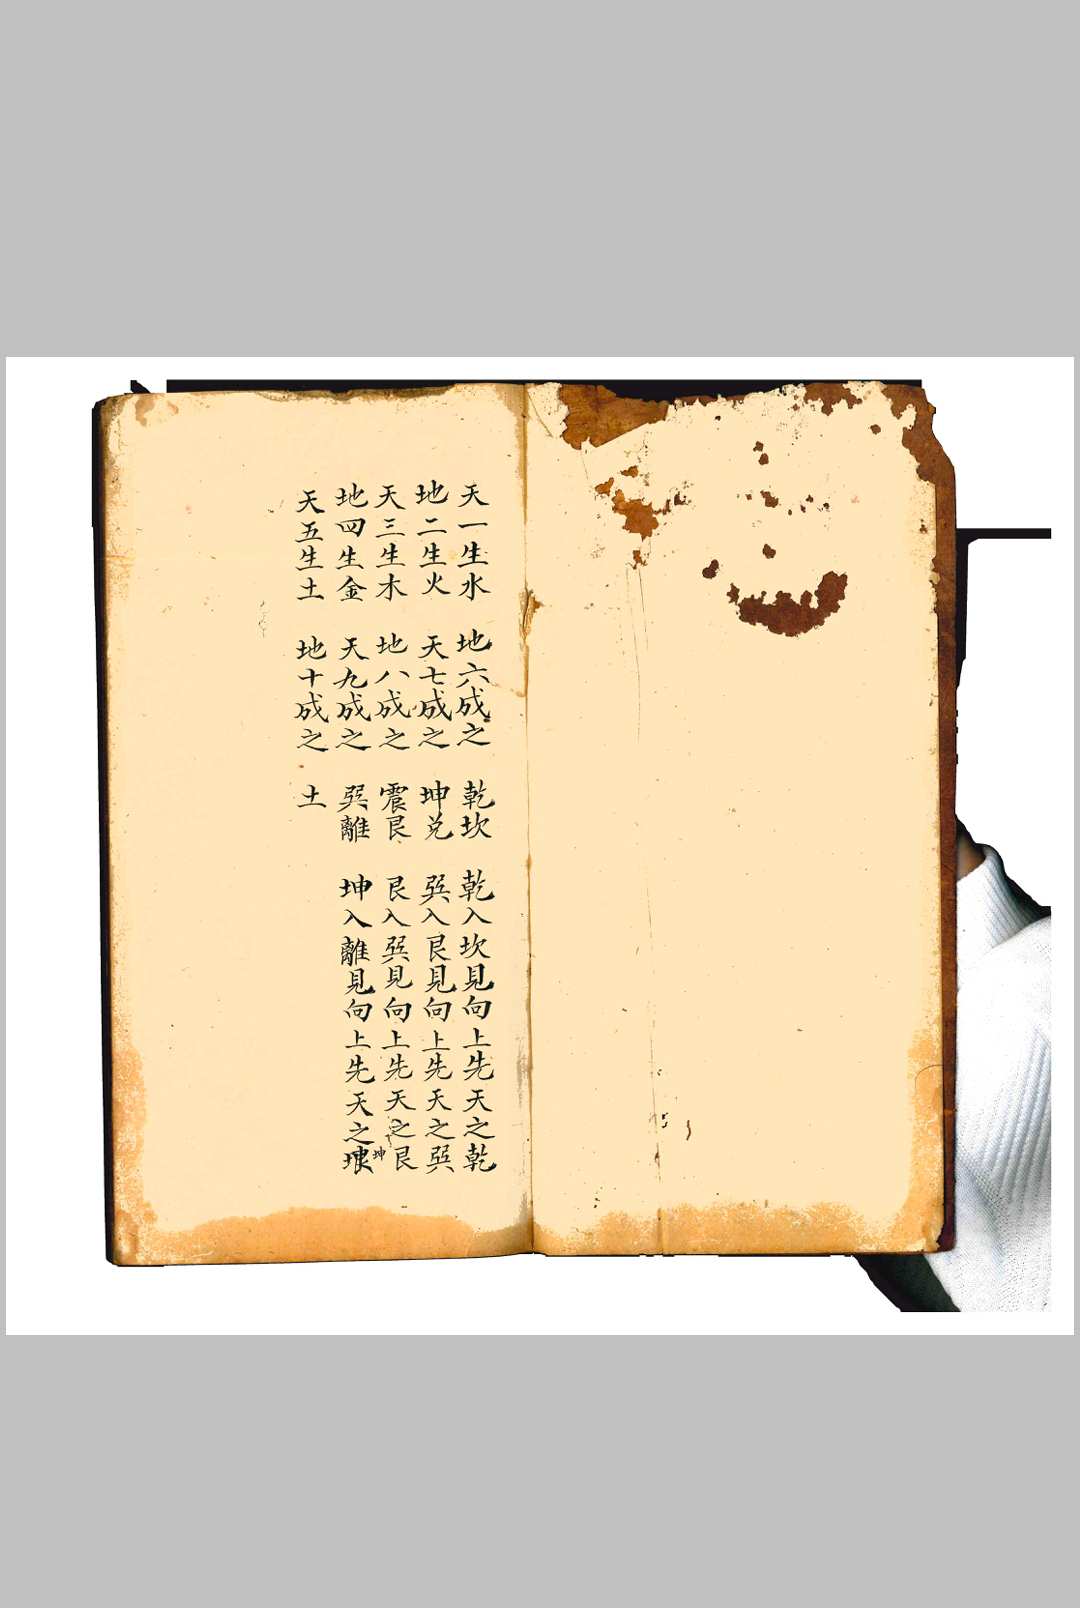 天一生水 地六成之 乾坎 乾入坎見向上先天之乾
地二生火 天七成之 坤兑 巽入艮見向上先天之巽
天三生木 地八成之 震艮 艮入巽見向上先天之艮
地四生金 天九成之 巽離 坤入離見向上先天之坤
天五生土 地十成之 土